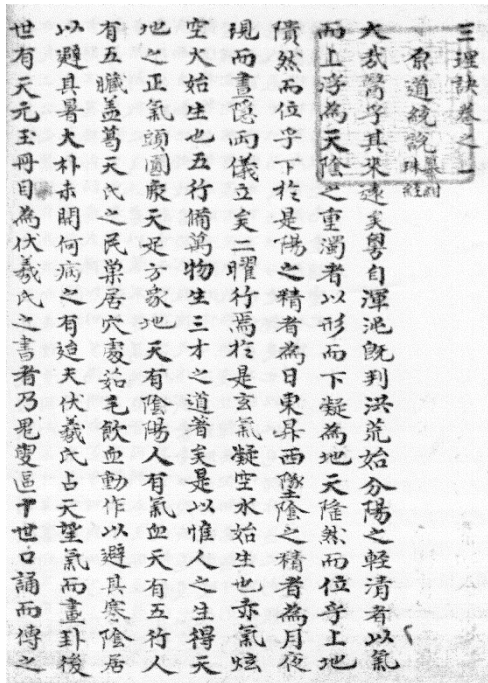 三理訣卷之一
原道統說
大哉醫乎其來遠矣粵自渾沌旣到洪荒始分陽之輕清者以氣
而上浮為天陰之重濁者以形而下凝為地天隆然而位乎上地
隤然而位乎下於是陽之精者為日東昇西墜陰之精者為月夜
現而晝隱兩儀立矣二曜行焉於是玄氣凝空水始生也赤氣炫
空火始生也五行備萬物生三才之道著矣是以惟人之生得天
地之正氣頭圓象天足方象地天有陰陽人有氣血天有五行人
有五臟盖葛天氏之民巢居穴處茹毛飲血動作以避其寒陰居
以避其暑大朴未開何病之有迨夫伏羲氏占天望氣而畫卦後
世有天元玉冊目為伏羲氏之書者乃鬼臾區十世口誦而傳之